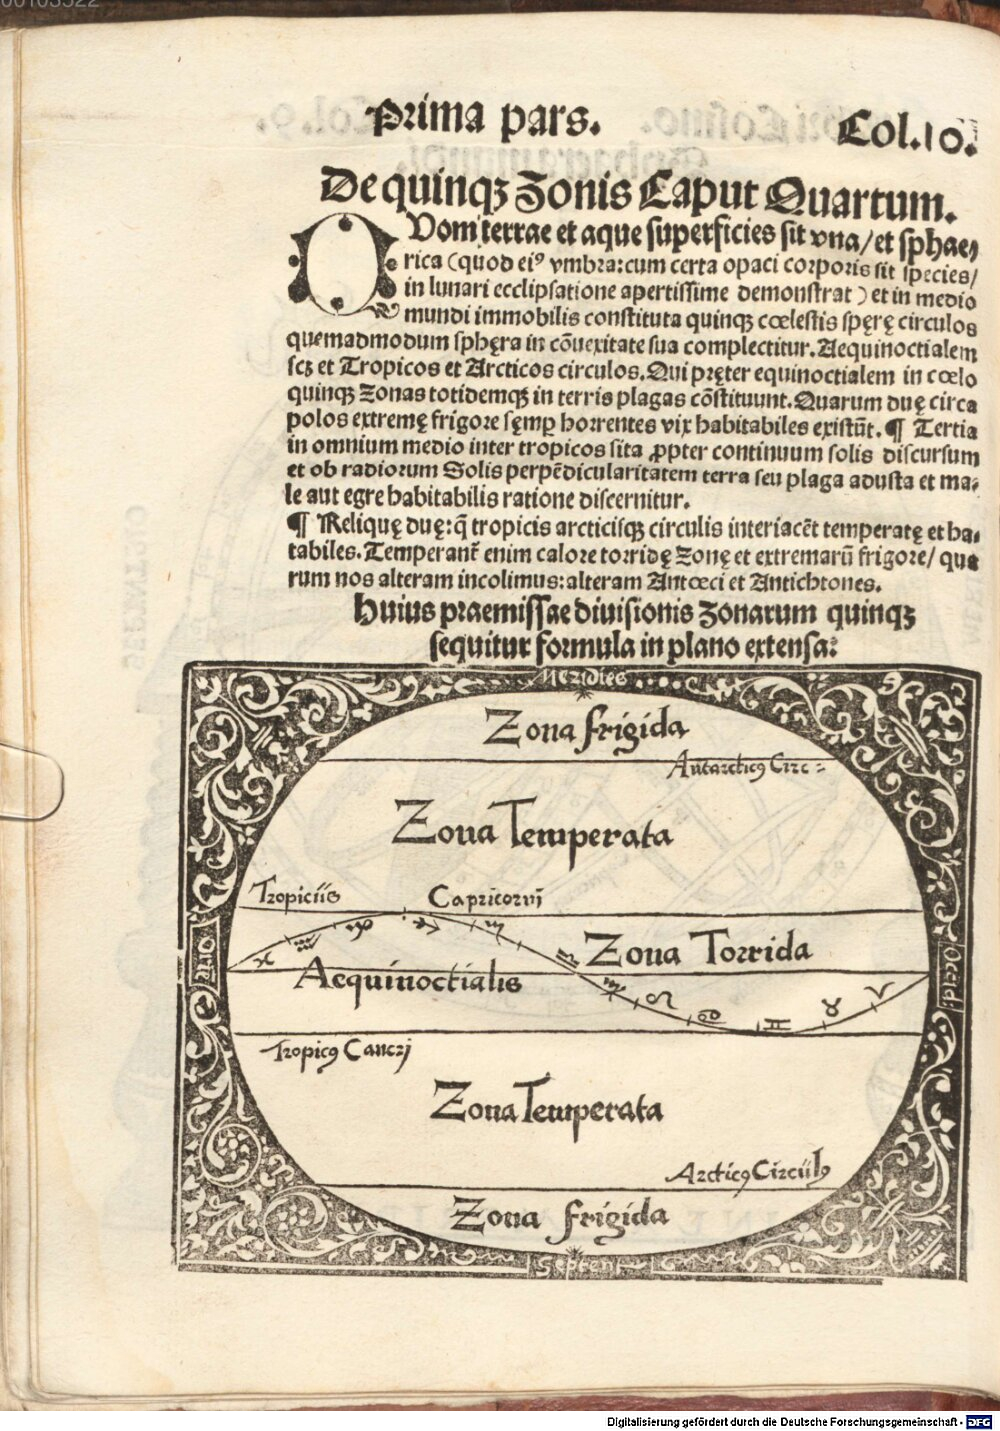 00103522
Prima pars.
Col.10.
De quinqꝫ Zonis Caput Quartum.
QVom terrae et aque superficies sit vna/et sphae⸗
rica (quod eiꝰ vmbra:cum certa opaci corporis sit species/
in lunari ecclipsatione apertissime demonstrat) et in medio
mundi immobilis constituta quinqꝫ cœlestis spęrę circulos
quemadmodum sphęra in cōuexitate sua complectitur. Aequinoctialem
scꝫ et Tropicos et Arcticos circulos. Qui pręter equinoctialem in cœlo
quinqꝫ Zonas totidemqꝫ in terris plagas cōstituunt. Quarum duę circa
polos extremę frigore sęmꝑ horrentes vix habitabiles existūt. ¶ Tertia
in omnium medio inter tropicos sita ꝓpter continuum solis discursum
et ob radiorum Solis perpēdicularitatem terra seu plaga adusta et ma⸗
le aut egre habitabilis ratione discernitur.
¶ Reliquę duę: q̄ tropicis arcticisqꝫ circulis interiacēt temperatę et ha⸗
tabiles. Temperant᷑ enim calore torridę Zonę et extremarū frigore/ qua
rum nos alteram incolimus: alteram Antœci et Antichtones.
Huius praemissae divisionis Zonarum quinqꝫ
sequitur formula in plano extensa:
Meridies
Zona frigida
Antarcticꝰ Circ⸗
Zona Temperata
Tropicus Capricorni
♓ ♒ ♑ ♐ ♏
♎ Zona Torrida
Aequinoctialis
♍ ♌ ♋ ♊ ♉ ♈
Tropicꝰ Cancri
Zona Temperata
Arcticꝰ Circulꝰ
Zona frigida
Septent
Digitalisierung gefördert durch die Deutsche Forschungsgemeinschaft - DFG